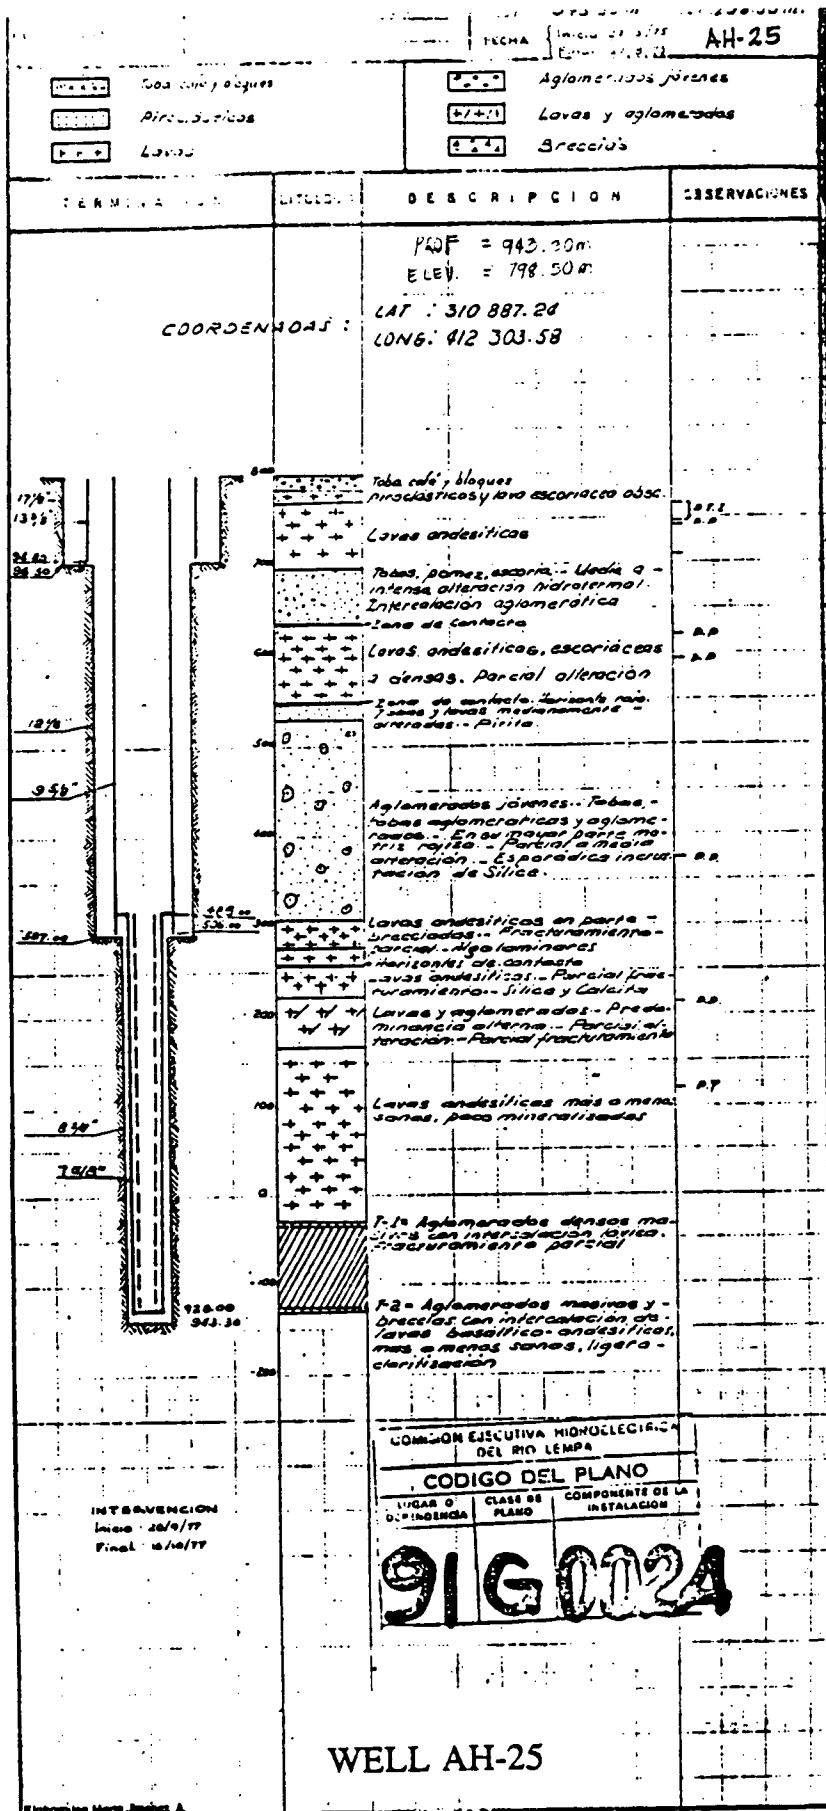 FECHA
AH-25
Toba café y bloques
Piroclasticos
Lavas
Aglomerados jóvenes
Lavas y aglomerados
Breccias
DESCRIPCION
OBSERVACIONES
PROF = 943.30m
ELEV. = 798.50m
COORDENADAS :
LAT : 310 887.24
LONG: 412 303.58
Toba café y bloques
piroclásticos y lava escoriacea obsc.
Lavas andesiticas
Tobas, pomez, escoria - Media a -
intensa alteración hidrotermal.
Intercalación aglomerática
Zona de contacto
Lavas andesiticas, escoriáceas
a densas. Parcial alteración
Zona de contacto. Horizonte rojo.
Tobas y lavas medianamente -
alteradas - Pirita
Aglomerados jóvenes - Tobas, -
tobas aglomeraticas y aglome-
rados - En su mayor parte ma-
triz rojiza - Parcial a media
alteración - Esporádica incrus-
tación de Silice.
Lavas andesiticas en parte -
brecciadas - Fracturamiento
parcial - Algo laminares
Horizontes de contacto
Lavas andesiticas - Parcial frac-
turamiento - Silice y Calcita
Lavas y aglomerados - Predo-
minancia alterna - Parcial al-
teración - Parcial fracturamiento
Lavas andesiticas más o menos
sanas, poco mineralizadas
F-1= Aglomerados densos ma-
sivos con intercalación lávica.
Fracturamiento parcial
F-2= Aglomerados masivos y -
brecias con intercalación de
lavas basáltico-andesiticas,
mas o menos sanas, ligera -
cloritización
700
600
500
400
300
200
100
0
-100
-200
9 5/8"
587.00
536.00
928.00
943.30
INTERVENCION
Inicio 26/9/77
Final 16/10/77
COMISION EJECUTIVA HIDROELECTRICA
DEL RIO LEMPA
CODIGO DEL PLANO
LUGAR O DEPENDENCIA
CLASE DE PLANO
COMPONENTE DE LA INSTALACION
91 G 0024
WELL AH-25